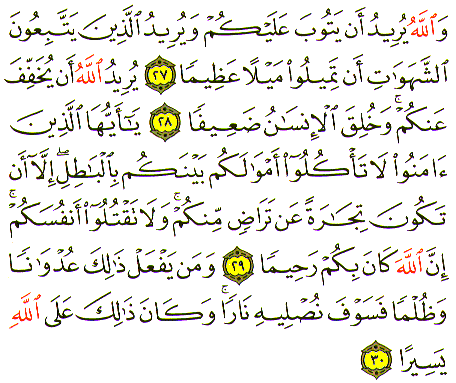 وَٱللَّهُ يُرِيدُ أَن يَتُوبَ عَلَيْكُمْ وَيُرِيدُ ٱلَّذِينَ يَتَّبِعُونَ
ٱلشَّهَوَٰتِ أَن تَمِيلُوا۟ مَيْلًا عَظِيمًا ٢٧ يُرِيدُ ٱللَّهُ أَن يُخَفِّفَ
عَنكُمْ ۚ وَخُلِقَ ٱلْإِنسَٰنُ ضَعِيفًا ٢٨ يَٰٓأَيُّهَا ٱلَّذِينَ
ءَامَنُوا۟ لَا تَأْكُلُوٓا۟ أَمْوَٰلَكُم بَيْنَكُم بِٱلْبَٰطِلِ إِلَّآ أَن
تَكُونَ تِجَٰرَةً عَن تَرَاضٍ مِّنكُمْ ۚ وَلَا تَقْتُلُوٓا۟ أَنفُسَكُمْ ۚ
إِنَّ ٱللَّهَ كَانَ بِكُمْ رَحِيمًا ٢٩ وَمَن يَفْعَلْ ذَٰلِكَ عُدْوَٰنًا
وَظُلْمًا فَسَوْفَ نُصْلِيهِ نَارًا ۚ وَكَانَ ذَٰلِكَ عَلَى ٱللَّهِ
يَسِيرًا ٣٠